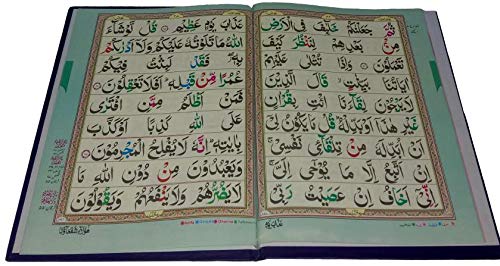 ثُمَّ جَعَلْنٰكُمْ خَلٰٓئِفَ فِی الْاَرْضِ
مِنْۢ بَعْدِهِمْ لِنَنْظُرَ كَیْفَ
تَعْمَلُوْنَ وَاِذَا تُتْلٰی عَلَیْهِمْ
اٰیَاتُنَا بَیِّنٰتٍ قَالَ الَّذِیْنَ
لَا یَرْجُوْنَ لِقَآءَنَا ائْتِ بِقُرْاٰنٍ
غَیْرِ هٰذَاۤ اَوْ بَدِّلْهُ قُلْ مَا یَكُوْنُ لِیْۤ
اَنْ اُبَدِّلَهٗ مِنْ تِلْقَآئِ نَفْسِیْ
اِنْ اَتَّبِعُ اِلَّا مَا یُوْحٰۤی اِلَیَّ
اِنِّیْۤ اَخَافُ اِنْ عَصَیْتُ رَبِّیْ
عَذَابَ یَوْمٍ
عَذَابَ یَوْمٍ عَظِیْمٍ قُلْ لَّوْ شَآءَ
اللّٰهُ مَا تَلَوْتُهٗ عَلَیْكُمْ وَلَاۤ اَدْرٰىكُمْ
بِهٖ فَقَدْ لَبِثْتُ فِیْكُمْ
عُمُرًا مِّنْ قَبْلِهٖ اَفَلَا تَعْقِلُوْنَ
فَمَنْ اَظْلَمُ مِمَّنِ افْتَرٰی
عَلَی اللّٰهِ كَذِبًا اَوْ كَذَّبَ
بِاٰیٰتِهٖ اِنَّهٗ لَا یُفْلِحُ الْمُجْرِمُوْنَ
وَیَعْبُدُوْنَ مِنْ دُوْنِ اللّٰهِ مَا
لَا یَضُرُّهُمْ وَلَا یَنْفَعُهُمْ وَیَقُوْلُوْنَ
هٰۤؤُلَآءِ شُفَعَآؤُنَا